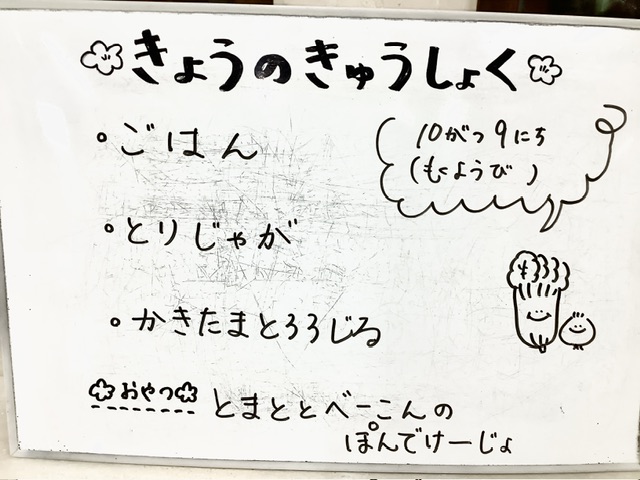 きょうのきゅうしょく
10がつ9にち
(もくようび)
・ごはん
・とりじゃが
・かきたまとろろじる
おやつ
とまととべーこんの
ぽんでけーじょ